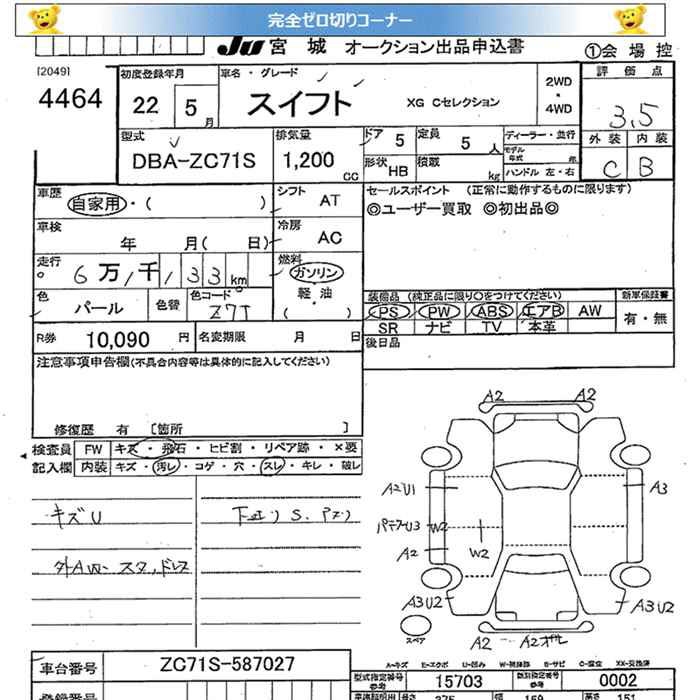 完全ゼロ切りコーナー
JU 宮城 オークション出品申込書 ①会場控
[2049]
4464
初度登録年月
22 5 月
車名・グレード
スイフト XG Cセレクション
2WD・4WD
評価点
3.5
型式
DBA-ZC71S
排気量
1,200 CC
ドア 5
定員 5 人
形状 HB
積載 kg
ディーラー・並行
モデル年式 年
ハンドル 左・右
外装 内装
C B
車歴
自家用・( )
シフト AT
セールスポイント (正常に動作するものに限ります)
◎ユーザー買取 ◎初出品◎
車検
年 月( 日)
冷房 AC
走行
6万1千133km
燃料
ガソリン
軽油
( )
色 パール
色替
色コード Z7T
装備品 (純正品に限り○をつけてください)
新車保証書
PS PW ABS エアB AW
SR ナビ TV 本革
有・無
R券 10,090 円
名変期限 月 日
後日品
注意事項申告欄(不具合内容等は具体的に記入してください)
修復歴 有 [箇所 ]
検査員記入欄
FW キズ・飛石・ヒビ割・リペア跡・×要
内装 キズ・汚レ・コゲ・穴・スレ・キレ・破レ
キズU
下廻りS.
外AW-スタッドレス
A2 A2
A2U1
A3
W2
W2
A2
A3U2
A3U2
スペア
A2
A-キズ E-エクボ U-凹み W-補修跡 S-サビ C-腐食 XX-交換済
車台番号 ZC71S-587027
型式指定番号 参考 15703
類別指定番号 参考 0002
登録番号
長さ 375 幅 169 高さ 151